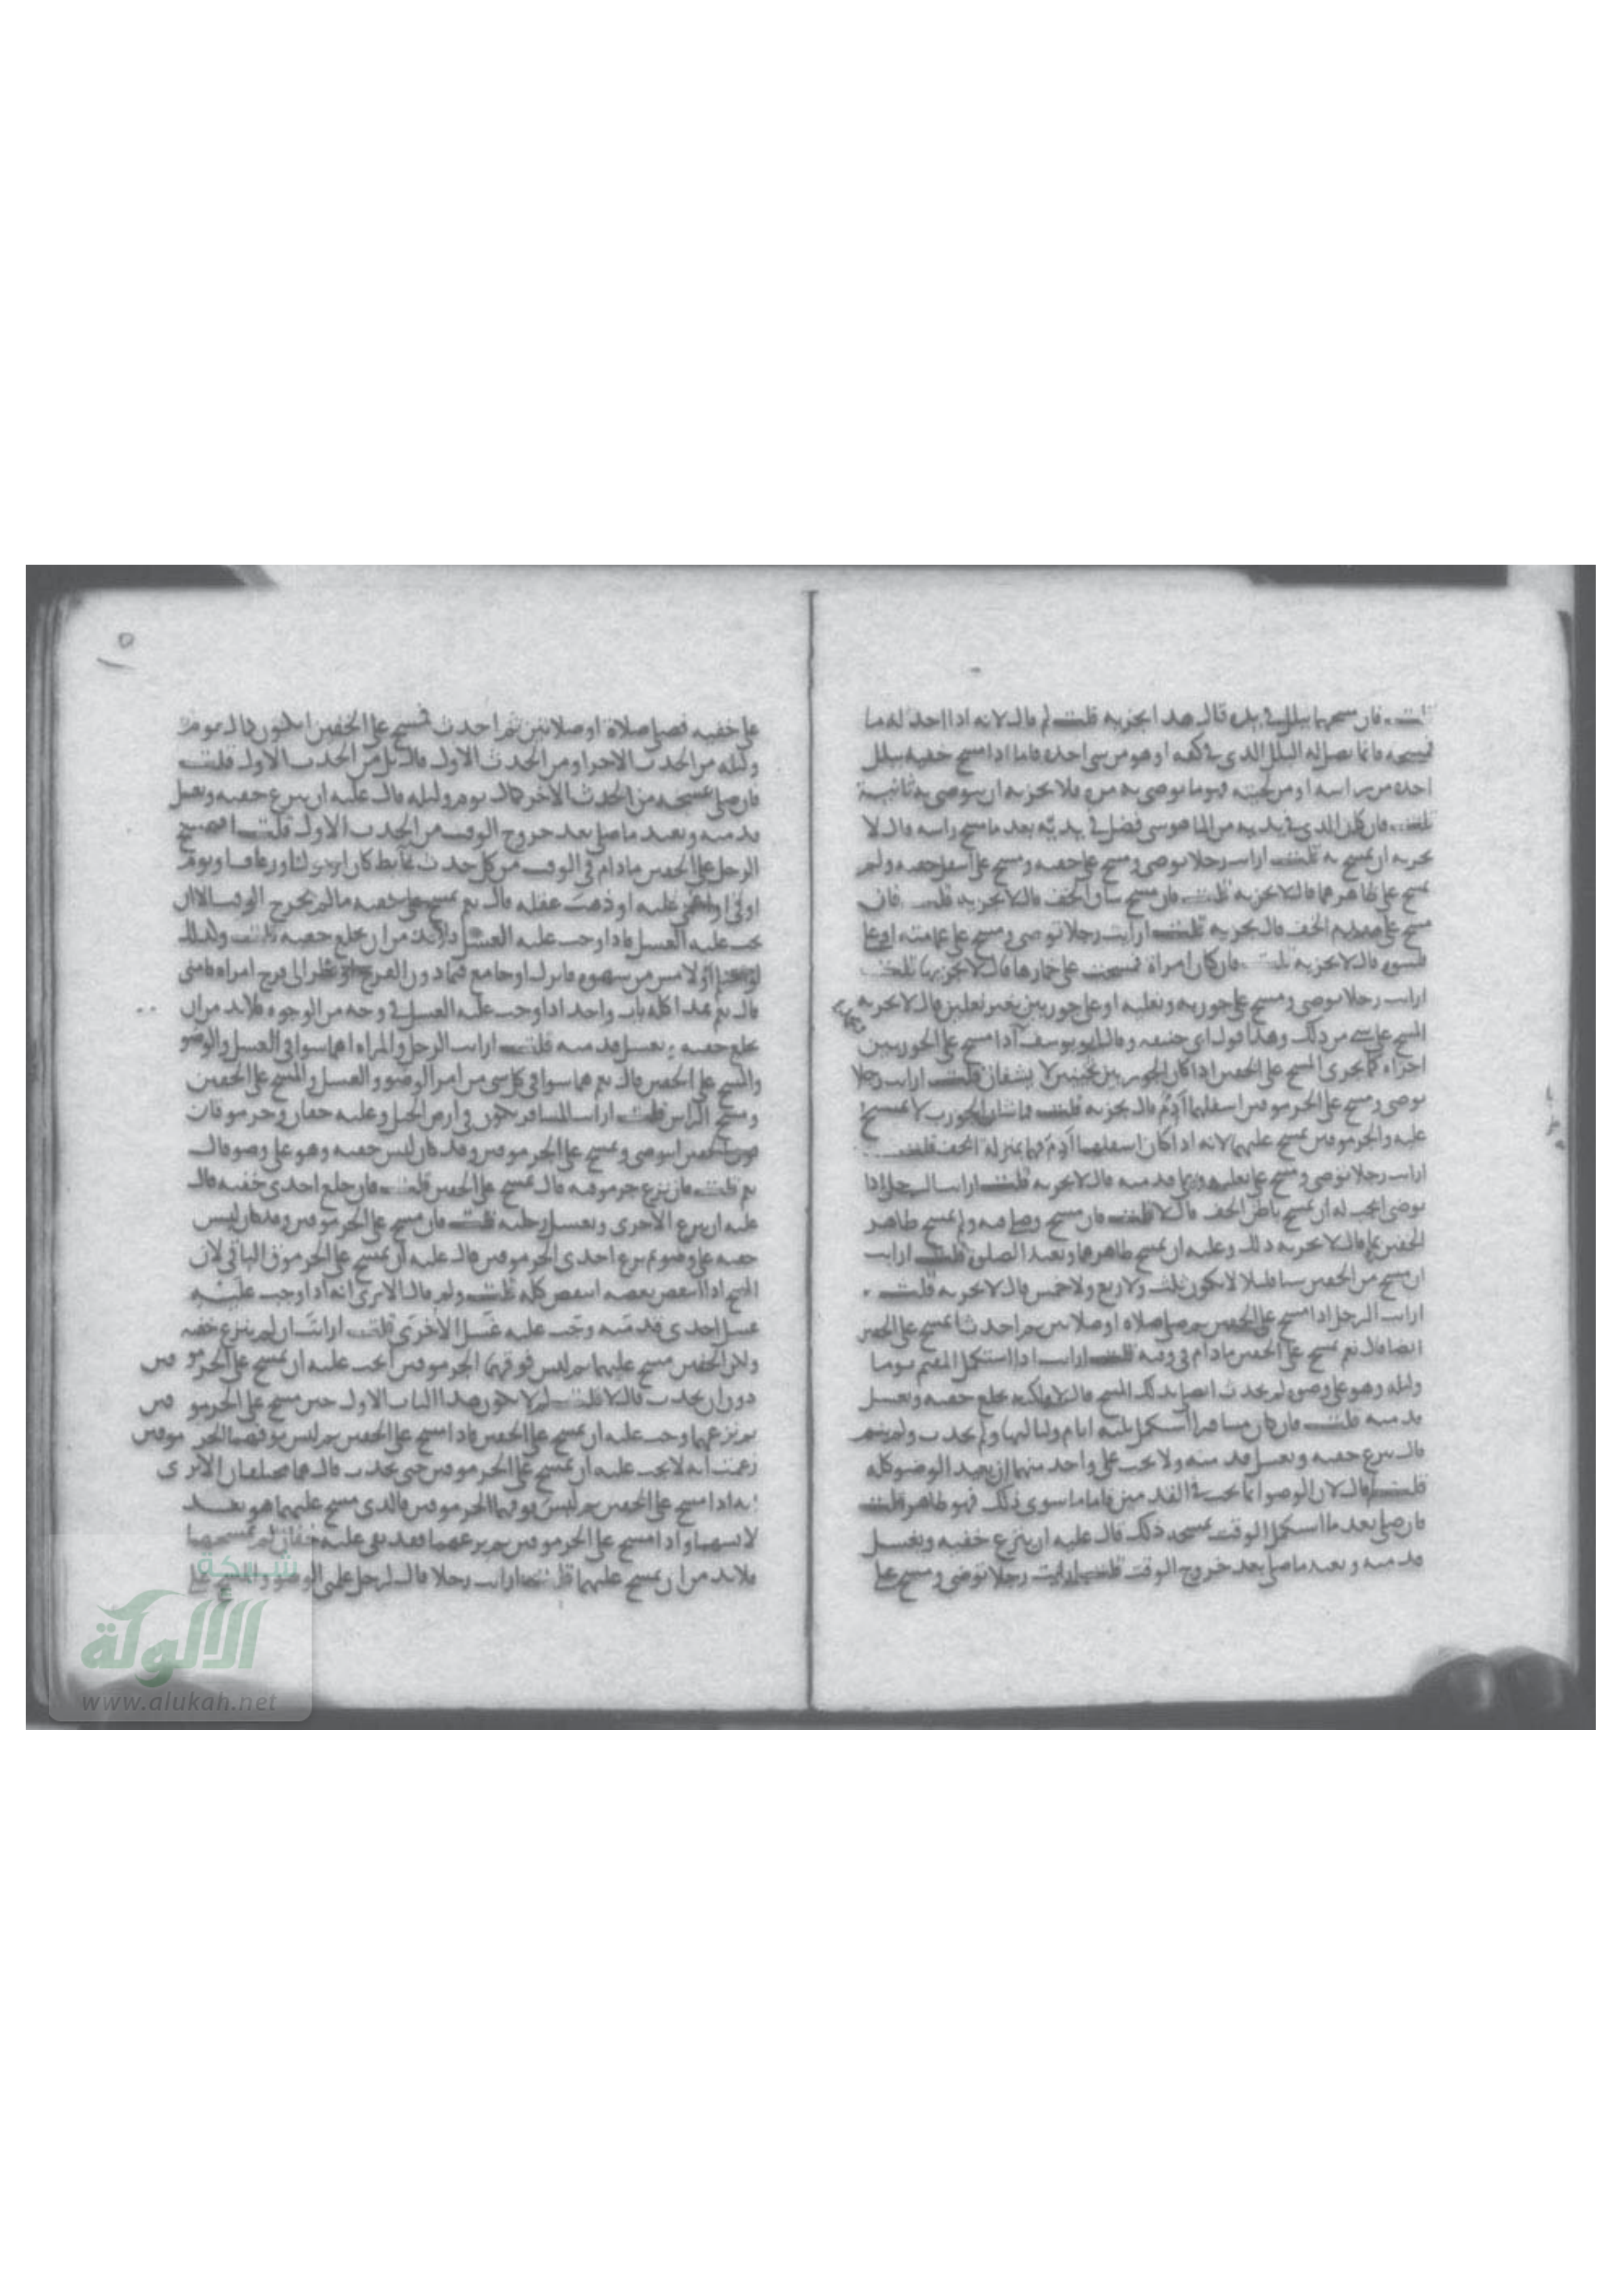 قلت فان مسحهما ببلل في يده قال هذا يجزيه قلت لم قال لانه اذا اخذ له ما
فمسحه فانما فضل له البلل الذي في كفه او هو من شي اخذه فاما اذا مسح خفيه ببلل
اخذه من راسه او من لحيته فهو ما توضى به مره فلا يجزيه ان يتوضى به ثانية
قلت فان كان الذي في يديه من الما هو شي فضل في يديه بعد ما مسح راسه قال لا
يجزيه ان يمسح به قلت ارايت رجلا توضى ومسح على خفيه ومسح على اسفل خفيه ولم
يمسح على ظاهرهما قال لا يجزيه قلت فان مسح ساق الخف قال لا يجزيه قلت فان
مسح على مقدم الخف قال يجزيه قلت ارايت رجلا توضى ومسح على عمامته او على
قلنسوه قال لا يجزيه قلت فان كان امراة فمسحت على خمارها قال لا يجزيها قلت
ارايت رجلا توضى ومسح على جوربيه ونعليه او على جوربين بغير نعلين قال لا يجزيه
المسح على شي من ذلك وهذا قول ابي حنيفه وقال ابو يوسف اذا مسح على الجوربين
اجزاه كما يجزى المسح على الخفين اذا كان الجوربين ثخينين لا يشفان قلت ارايت رجلا
توضى ومسح على الجرموقين اسفلهما ادم قال يجزيه قلت فما شان الجورب لا يمسح
عليه والجرموقين يمسح عليهما لانه اذا كان اسفلهما ادم فهما بمنزلة الخف قلت
ارايت رجلا توضى ومسح على نعليه قدميه قال لا يجزيه قلت ارايت الرجل اذا
توضى ايجب له ان يمسح باطن الخف قال لا قلت فان مسح وصلى فيه ولم يمسح ظاهر
الخفين قال لا يجزيه ذلك وعليه ان يمسح ظاهرهما ويعيد الصلوة قلت ارايت
ان مسح من الخفين شيا قليلا لا يكون ثلث ولا ربع ولا خمس قال لا يجزيه قلت
ارايت الرجل اذا مسح على الخفين ثم صلى صلاه او صلاتين ثم احدث ايمسح على الخفين
ايضا قال نعم يمسح على الخفين ما دام في وقته قلت ارايت اذا استكمل المقيم يوما
وليله وهو على وضوه لم يحدث ايصلي بذلك المسح قال لا ولكنه يخلع خفيه ويغسل
قدميه قلت فان كان مسافرا استكمل ثلثه ايام ولياليها ولم يحدث ولم ينم
قال ينزع خفيه ويغسل قدميه ولا يجب على واحد منهما ان يعيد الوضو كله
قلت قال لان الوضو انما يجب في القدمين فاما ما سوى ذلك فهو طاهر قلت
فان صلى بعد ما استكمل الوقت بمسحه ذلك قال عليه ان ينزع خفيه ويغسل
قدميه ويعيد ما صلى بعد خروج الوقت قلت ارايت رجلا توضى ومسح على
٥
على خفيه فصلى صلاة او صلاتين ثم احدث فمسح على الخفين ايكون قال يوم
وليله من الحدث الاخر او من الحدث الاول قال بل من الحدث الاول قلت
فان صلى بمسحه من الحدث الاخر يوم وليله قال عليه ان ينزع خفيه ويغسل
قدميه ويعيد ما صلى بعد خروج الوقت من الحدث الاول قلت افيمسح
الرجل على الخفين ما دام في الوقت من كل حدث غايط كان او بول او رعاف او نوم
او قي او اغمي عليه او ذهب عقله قال نعم يمسح على خفيه ما لم يخرج الوقت الا ان
يجب عليه الغسل فاذا وجب عليه الغسل فلا بد من ان يخلع خفيه قلت وكذلك
لو قبل او لامس من شهوه فانزل او جامع فيما دون الفرج او نظر الى فرج امراه فامنى
قال نعم هذا كله باب واحد اذا وجب عليه الغسل في وجه من الوجوه فلا بد من ان
يخلع خفيه ويغسل قدميه قلت ارايت الرجل والمراه اهما سوا في الغسل والوضو
والمسح على الخفين قال نعم هما سوا في كل شي من امر الوضو والغسل والمسح على الخفين
ومسح الراس قلت ارايت المسافر يكون في ارض الجبل وعليه خفان وجرموقان
فوق الخفين ايتوضى ويمسح على الجرموقين وقد كان لبس خفيه وهو على وضو قال
نعم قلت فان نزع جرموقيه قال يمسح على الخفين قلت فان خلع احدى خفيه قال
عليه ان ينزع الاخرى ويغسل رجليه قلت فان مسح على الجرموقين وقد كان لبس
خفيه على وضو ثم نزع احدى الجرموقين قال عليه ان يمسح على الجرموق الباقي لان
المسح اذا انتقض بعضه انتقض كله قلت ولم قال الا ترى انه اذا وجب عليه
غسل احدى قدميه وجب عليه غسل الاخرى قلت ارايت ان لم ينزع خفيه
ولكن الخفين مسح عليهما ثم لبس فوقهما الجرموقين ايجب عليه ان يمسح على الجرموقين
دون ان يحدث قال لا قلت لم لا يكون هذا الباب الاول حين مسح على الجرموقين
ثم نزعهما وجب عليه ان يمسح على الخفين فاذا مسح على الخفين ثم لبس فوقهما الجرموقين
زعمت انه لا يجب عليه ان يمسح على الجرموقين حتى يحدث قال هما مختلفان الا ترى
انه اذا مسح على الخفين ثم لبس فوقهما الجرموقين فالذي مسح عليهما هو بعد
لابسهما واذا مسح على الجرموقين ثم نزعهما فقد بقى عليه خفان لم يمسحهما
فلا بد من ان يمسح عليهما قلت ارايت رجلا قال لرجل علمني الوضو والمسح على
شبكة
الألوكة
www.alukah.net